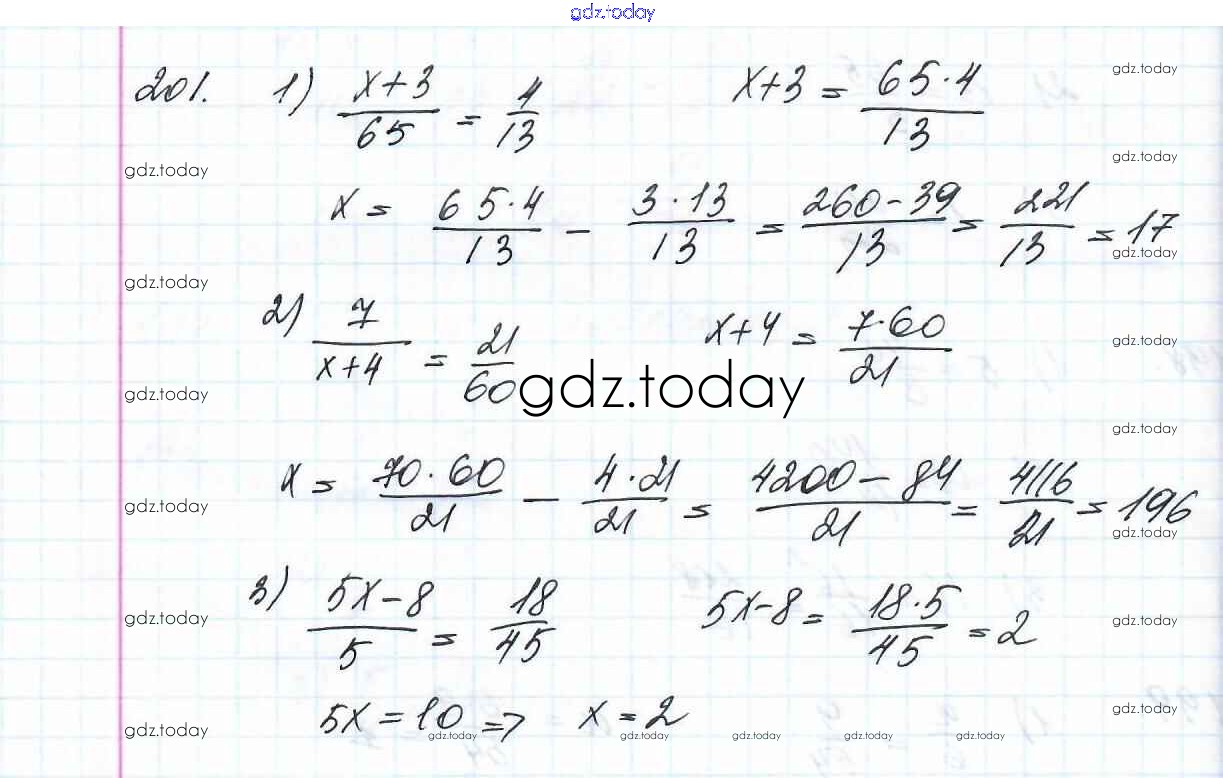 gdz.today
201. 1) (x+3)/65 = 4/13    x+3 = (65·4)/13    gdz.today
gdz.today    gdz.today
x = (65·4)/13 − (3·13)/13 = (260−39)/13 = 221/13 = 17
gdz.today
gdz.today
2) 7/(x+4) = 21/60    x+4 = (7·60)/21    gdz.today
gdz.today    gdz.today
gdz.today
x = (70·60)/21 − (4·21)/21 = (4200−84)/21 = 4116/21 = 196
gdz.today    gdz.today
3) (5x−8)/5 = 18/45    5x−8 = (18·5)/45 = 2
gdz.today    gdz.today
5x = 10 => x = 2    gdz.today
gdz.today    gdz.today    gdz.today    gdz.today    gdz.today    gdz.today